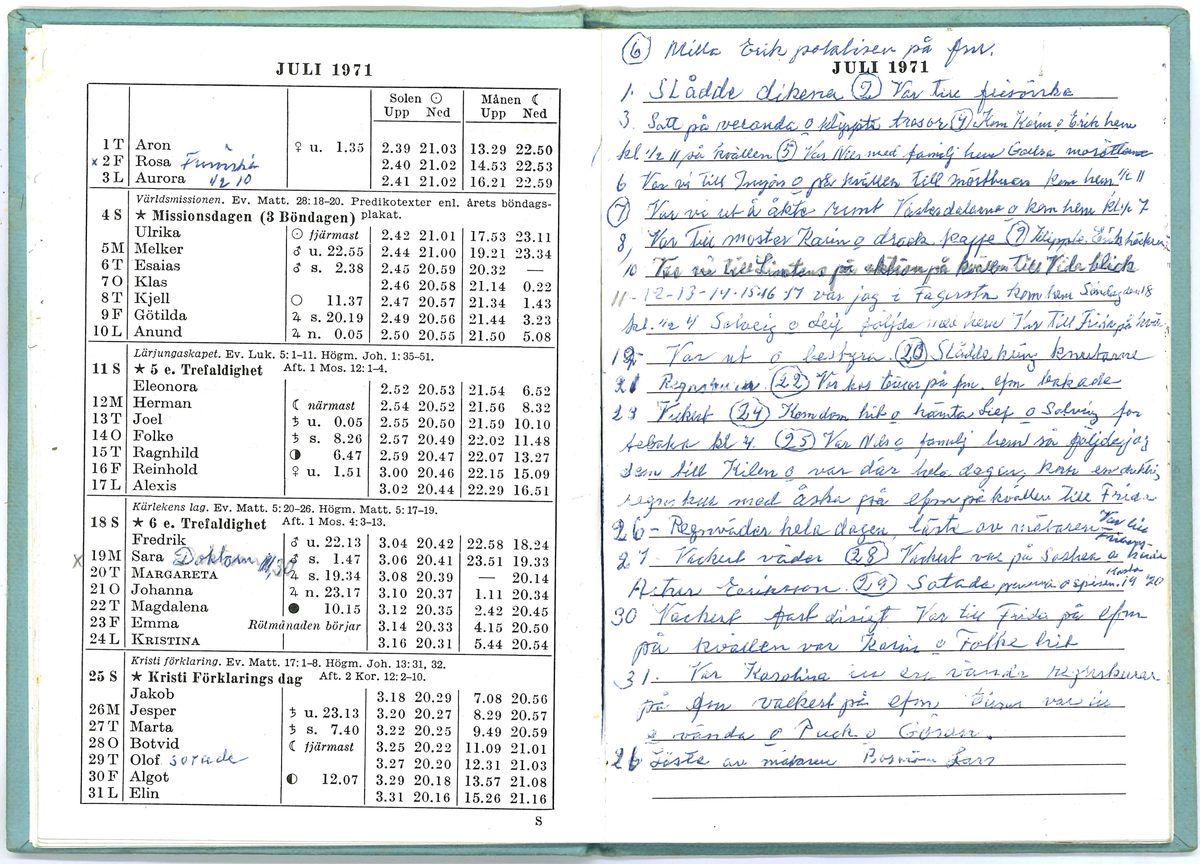 JULI 1971
Solen ☉ Månen ☾
Upp Ned Upp Ned
1 T Aron ♀ u. 1.35 2.39 21.03 13.29 22.50
x 2 F Rosa 2.40 21.02 14.53 22.53
3 L Aurora 1/2 10 2.41 21.02 16.21 22.59
Världsmissionen. Ev. Matt. 28: 18-20. Predikotexter enl. årets böndags-
4 S ★ Missionsdagen (3 Böndagen) plakat.
Ulrika ☉ fjärmast 2.42 21.01 17.53 23.11
5 M Melker ♂ u. 22.55 2.44 21.00 19.21 23.34
6 T Esaias ♂ s. 2.38 2.45 20.59 20.32 —
7 O Klas 2.46 20.58 21.14 0.22
8 T Kjell ○ 11.37 2.47 20.57 21.34 1.43
9 F Götilda ♃ s. 20.19 2.49 20.56 21.44 3.23
10 L Anund ♃ n. 0.05 2.50 20.55 21.50 5.08
Lärjungaskapet. Ev. Luk. 5: 1-11. Högm. Joh. 1: 35-51.
11 S ★ 5 e. Trefaldighet Aft. 1 Mos. 12: 1-4.
Eleonora 2.52 20.53 21.54 6.52
12 M Herman ☾ närmast 2.54 20.52 21.56 8.32
13 T Joel ♄ u. 0.05 2.55 20.50 21.59 10.10
14 O Folke ♄ s. 8.26 2.57 20.49 22.02 11.48
15 T Ragnhild ◑ 6.47 2.59 20.47 22.07 13.27
16 F Reinhold ♀ u. 1.51 3.00 20.46 22.15 15.09
17 L Alexis 3.02 20.44 22.29 16.51
Kärlekens lag. Ev. Matt. 5: 20-26. Högm. Matt. 5: 17-19.
18 S ★ 6 e. Trefaldighet Aft. 1 Mos. 4: 3-13.
Fredrik ♂ u. 22.13 3.04 20.42 22.58 18.24
x 19 M Sara Doktorn 11,30 ♂ s. 1.47 3.06 20.41 23.51 19.33
20 T MARGARETA ♃ s. 19.34 3.08 20.39 — 20.14
21 O Johanna ♃ n. 23.17 3.10 20.37 1.11 20.34
22 T Magdalena ● 10.15 3.12 20.35 2.42 20.45
23 F Emma Rötmånaden börjar 3.14 20.33 4.15 20.50
24 L KRISTINA 3.16 20.31 5.44 20.54
Kristi förklaring. Ev. Matt. 17: 1-8. Högm. Joh. 13: 31, 32.
25 S ★ Kristi Förklarings dag Aft. 2 Kor. 12: 2-10.
Jakob 3.18 20.29 7.08 20.56
26 M Jesper ♄ u. 23.13 3.20 20.27 8.29 20.57
27 T Marta ♄ s. 7.40 3.22 20.25 9.49 20.59
28 O Botvid ☾ fjärmast 3.25 20.22 11.09 21.01
29 T Olof sotade 3.27 20.20 12.31 21.03
30 F Algot ◐ 12.07 3.29 20.18 13.57 21.08
31 L Elin 3.31 20.16 15.26 21.16
S
6 Milla Erik på fm.
JULI 1971
1. Slådde dikena 2 Var till
3. Satt på veranda o klippte trasor 4 Kom Karin o Erik hem
kl 1/2 11 på kvällen 5 Var Nils med familj hem
6 Var vi till Insjön o på kvällen till kom hem 1/2 11
7 Var vi ut å åkte runt Västerdalarna o kom hem kl 1/2 7
8, Var till moster Karin o drack kaffe 9 Klippte Erik
10 Var vi till på aktion på kvällen till Vida blick
11-12-13-14-15-16 17 var jag i Fagersta kom hem Söndag den 18
kl. 1/2 4 Solveig o Leif följde med hem Var till Frida på
19- Var ut o bestyra. 20 Slådde kring knutarne
21 22 Var hos på fm. efm bakade
23 Vackert 24 Kom dom hit o hämta Leif o Solveig for
tebaka kl 4. 25 Var Nils o familj hem så följde jag
dem till Kilen o var där hela dagen, kom en
regnskur med åska på efm på kvällen till Frida
26- Regnväder hela dagen, läste av mätaren Var
27 Vackert väder 28 Vackert var på o
Artur Eriksson. 29 Sotade o spisen. 19 20
30 Vackert fast disigt Var till Frida på efm
på kvällen var Karin o Folke hit
31. Var Karolina en vända regnskurar
på fm vackert på efm var
vända o Puck o Göran.
26 Läste av mätaren Lars